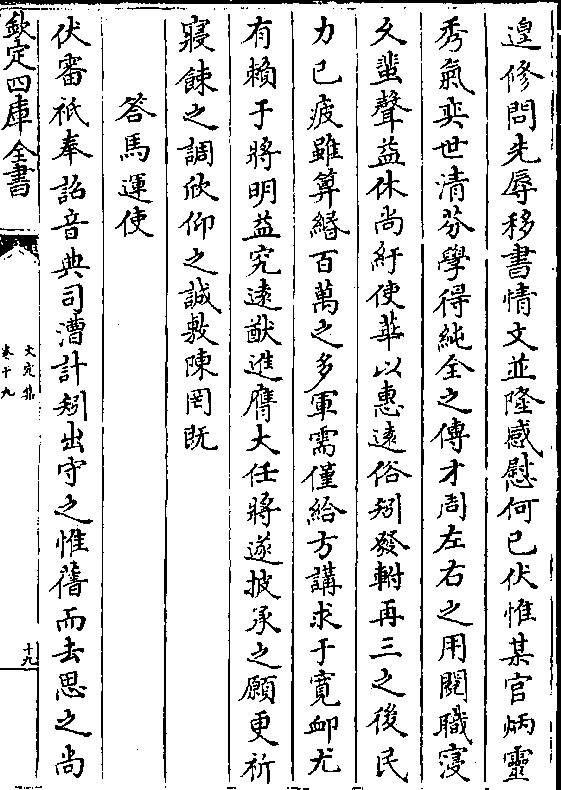 遑修問先辱移書情文並隆感慰何已伏惟某官炳靈
秀氣奕世清芬學得純全之傳才周左右之用閱職寖
久蜚聲益休尚紆使華以惠逺俗矧發軵再三之後民
力已疲雖算緡百萬之多軍需僅給方講求于寛衈尤
有賴于將明益究逺猷進膺大任將遂披承之願更祈
寢餗之調欣仰之誠敷陳罔既
答馬運使
伏審祇奉詔音典司漕計矧出守之惟舊而去思之尚
欽定四庫全書
文定集
卷十九
十九